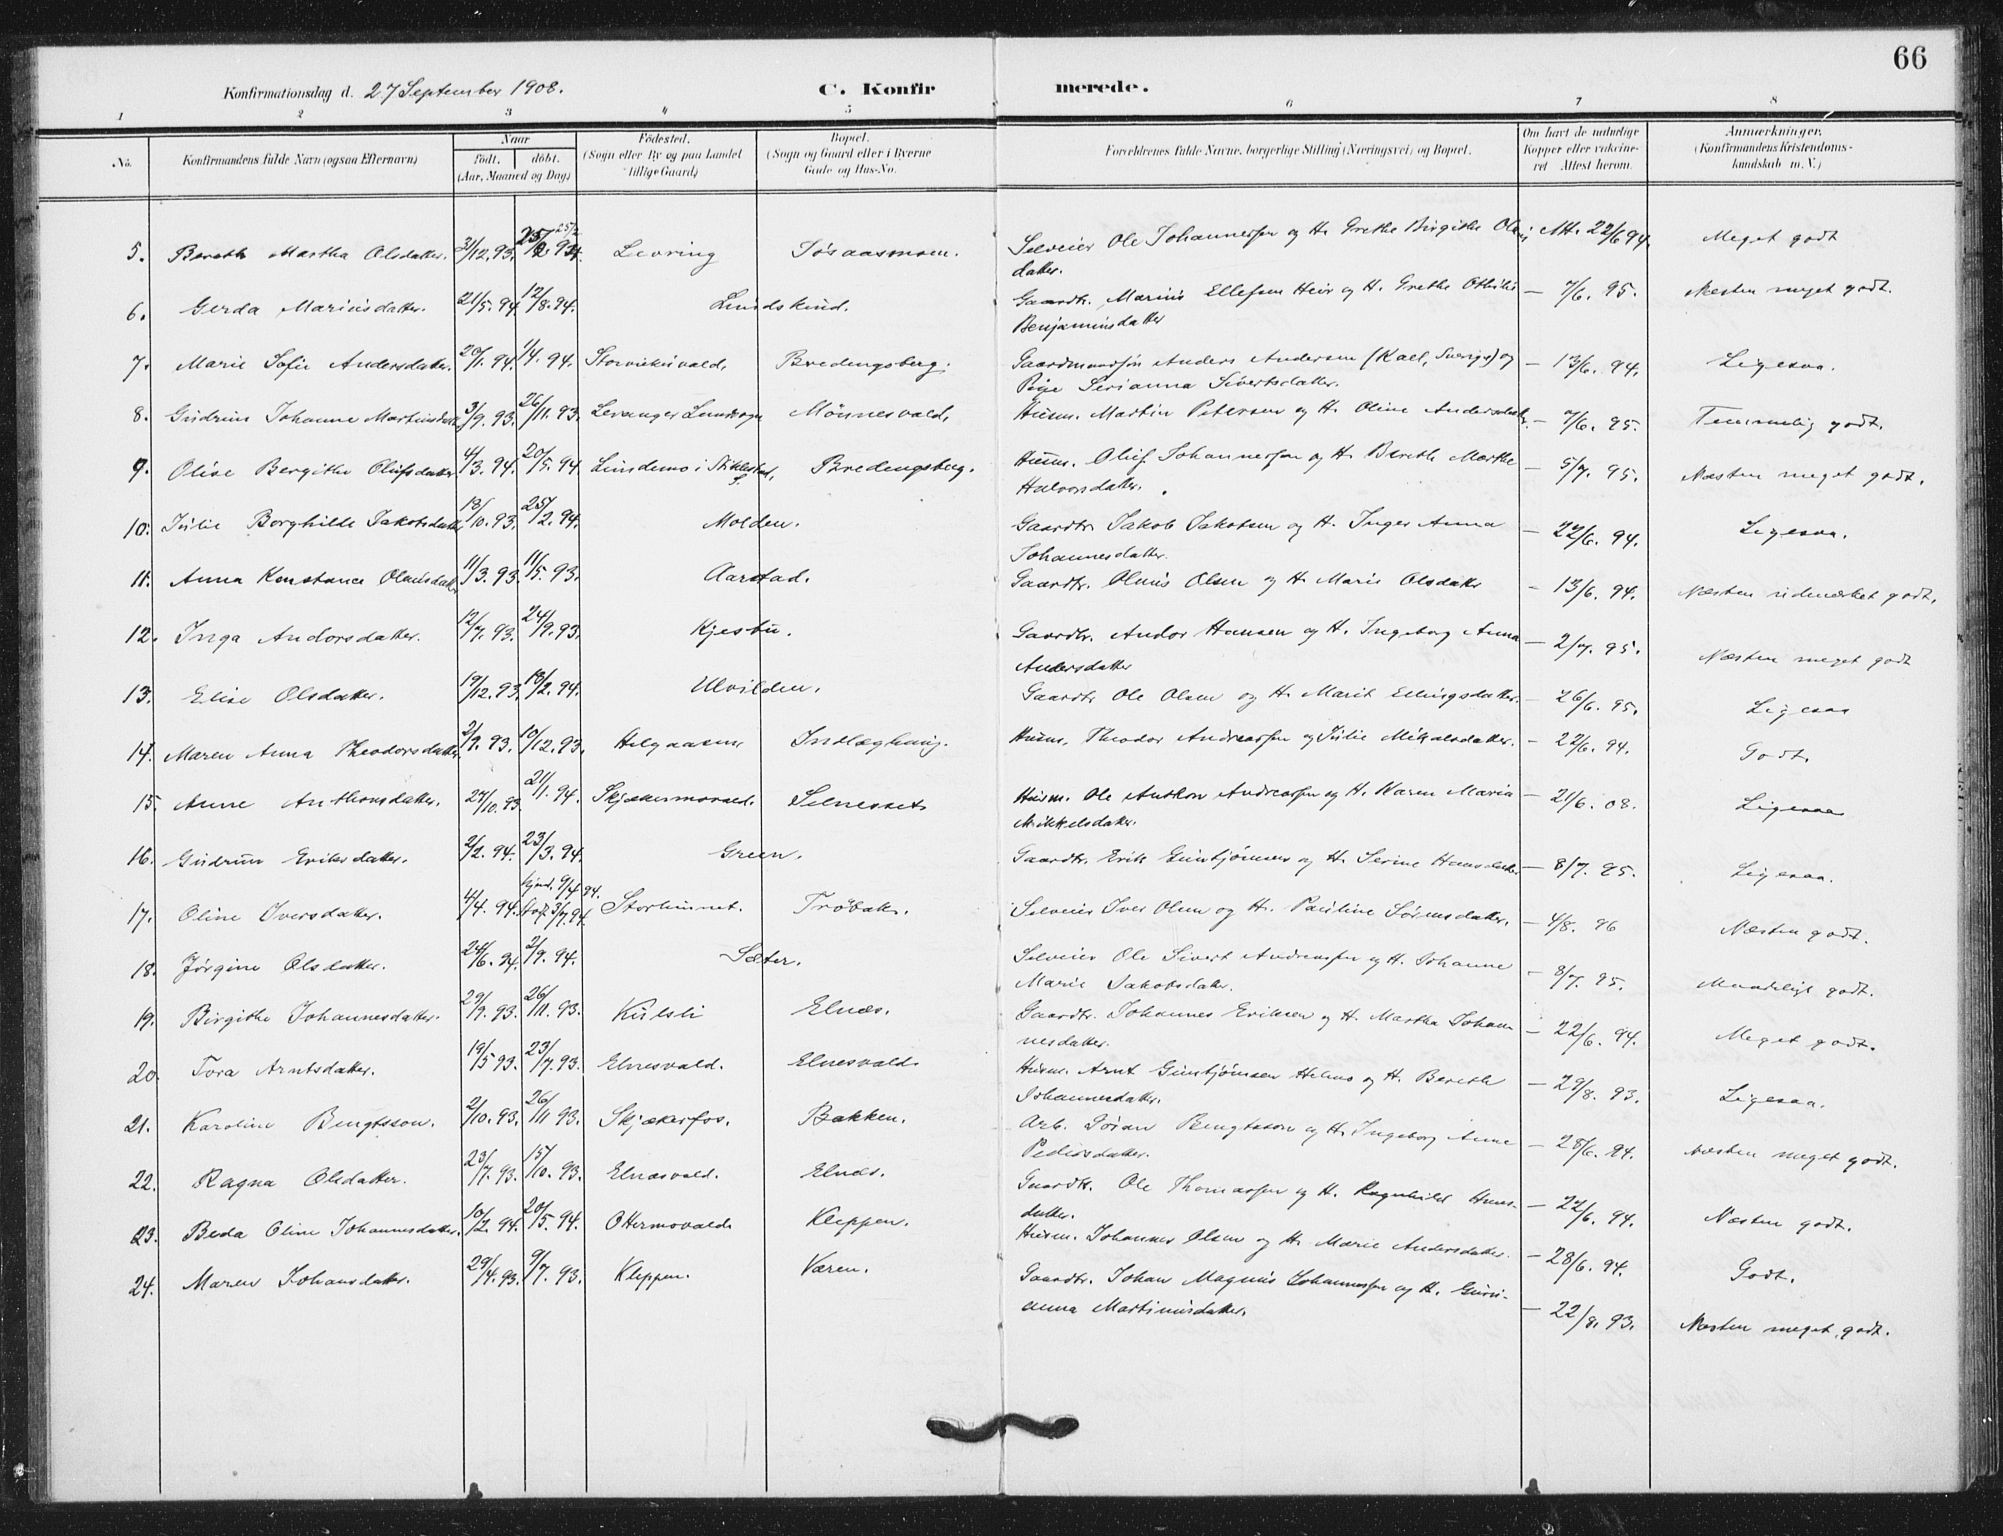 66
Konfirmationsdag d. 27 September 1908.
C. Konfirmerede.
1 2 3 4 5 6 7 8
No. Konfirmandens fulde Navn (ogsaa Efternavn) Naar födt. döbt. (Aar, Maaned og Dag) Födested. (Sogn eller By og paa Landet tillige Gaard) Bopæl. (Sogn og Gaard eller i Byerne Gade og Hus-No. Forældrenes fulde Navne, borgerlige Stilling (Næringsvei) og Bopæl. Om havt de naturlige Kopper eller vakcineret Attest herom. Anmærkninger. (Konfirmandens Kristendomskundskab m. V.)
5. Bereth Martha Olsdatter. 31/12.93. 25/2 94. Levring Selveier Ole Johannessen og H. Grethe Birgithe Att. 22/6 94. Meget godt
datter.
6. Gerda Mariusdatter. 21/5.94. 12/8.94. Gaardbr. Marius Ellefsen og H. Grethe — 7/6. 95. Næsten meget godt.
Benjaminsdatter
7. Marie Sofie Andersdatter. 20/1.94. 1/4.94. Storviksvald. Bredingsberg. Gaardmandssøn Anders Andersen (Kall, Sverige) og — 13/6. 94. Ligesaa.
Pige Serianna Sivertsdatter.
8. Gudrun Johanne 3/9.93. 26/11.93. Levanger Landsogn Mønnesvald. Husm. Martin Petersen og H. Oline Andersdatter — 7/6. 95. Temmelig godt.
9. Olise Bergithe Olufsdatter 4/3.94. 20/5.94. Lundemo i Bredingsberg. Husm. Oluf Johannessen og H. Bereth Marthe — 5/7. 95. Næsten meget godt.
Halvorsdatter.
10. Julie Borghild Jakobsdatter 13/10.93. 25/2.94. Molden. Gaardbr. Jakob Jakobsen og H. Inger Anna — 22/6. 94. Ligesaa.
Johannesdatter.
11. Anna Konstance Olausdatter 11/3.93. 11/5.93. Aarstad. Gaardbr. Olaus Olsen og H. Marie Olsdatter — 13/6. 94. Næsten udmærket godt.
12. Inga Andorsdatter. 12/7.93. 24/9.93. Kjesbu. Gaardbr. Andor Hansen og H. Ingeborg Anna — 2/7. 95. Næsten meget godt
Andersdatter
13. Elise Olsdatter. 19/12.93. 18/2.94. Ulvilden. Gaardbr. Ole Olsen og H. Marit Ellingsdatter. — 26/6. 95. Ligesaa
14. Maren Anna Theodorsdatter 2/9.93. 10/12.93. Helgaasen Husm. Theodor Andreassen og Julie Mikalsdatter. — 22/6. 94. Godt.
15. Anne Anthonsdatter. 27/10.93. 21/1.94. Skjækermovald. Selnesset Husm. Ole Anthon Andreassen og H. Karen Maria — 21/6. 08. Ligesaa
Mikkelsdatter.
16. Gudrun Eriksdatter. 2/2.94. 23/3.94. Green. Gaardbr. Erik Gunbjørnsen og H. Serine Hansdatter. — 8/7. 95. Ligesaa.
17. Oline Iversdatter. 4/4.94. hjmd. 9/4 94. Stadf. 3/7.94. Storhusset. Trøbak. Selveier Iver Olsen og H. Pauline Sørensdatter. — 4/8. 96 Næsten godt.
18. Jørgine Olsdatter. 24/6.94. 2/9.94. Sæter. Selveier Ole Sivert Andreassen og H. Johanne — 8/7. 95. Maadeligt godt.
Marie Jakobsdatter.
19. Birgithe Johannesdatter. 29/9.93. 26/11.93. Kulsli Elnæs. Gaardbr. Johannes Eriksen og H. Martha Johan — 22/6. 94. Meget godt.
nesdatter.
20. Tora Arntsdatter. 19/5 93. 23/7.93. Elnesvald. Elnesvald. Husm. Arnt Gunbjørnsen Helmo og H. Bereth — 29/8. 93. Ligesaa.
Johannesdatter.
21. Karoline Bengtsson. 2/10.93. 26/11 93. Skjækerfos. Bakken. Arb. Göran Bengtsson og H. Ingeborg Anne — 28/6. 94. Næsten meget godt.
Pedersdatter.
22. Ragna Olsdatter. 23/7.93. 15/10.93. Elnæsvald. Elnæs. Gaardbr. Ole Thomassen og H. Ragnhild Hans- — 22/6. 94. Næsten godt.
datter.
23. Beda Oline Johannesdatter. 10/2.94. 20/5.94. Ottermovald Kleppen. Husm. Johannes Olsen og H. Marie Andersdatter. — 28/6. 94. Godt.
24. Maren Johansdatter. 29/4.93. 9/7.93. Kleppen. Væren. Gaardbr. Johan Magnus Johannessen og H. Guru- — 22/8. 93. Næsten meget godt.
anna Martinusdatter.